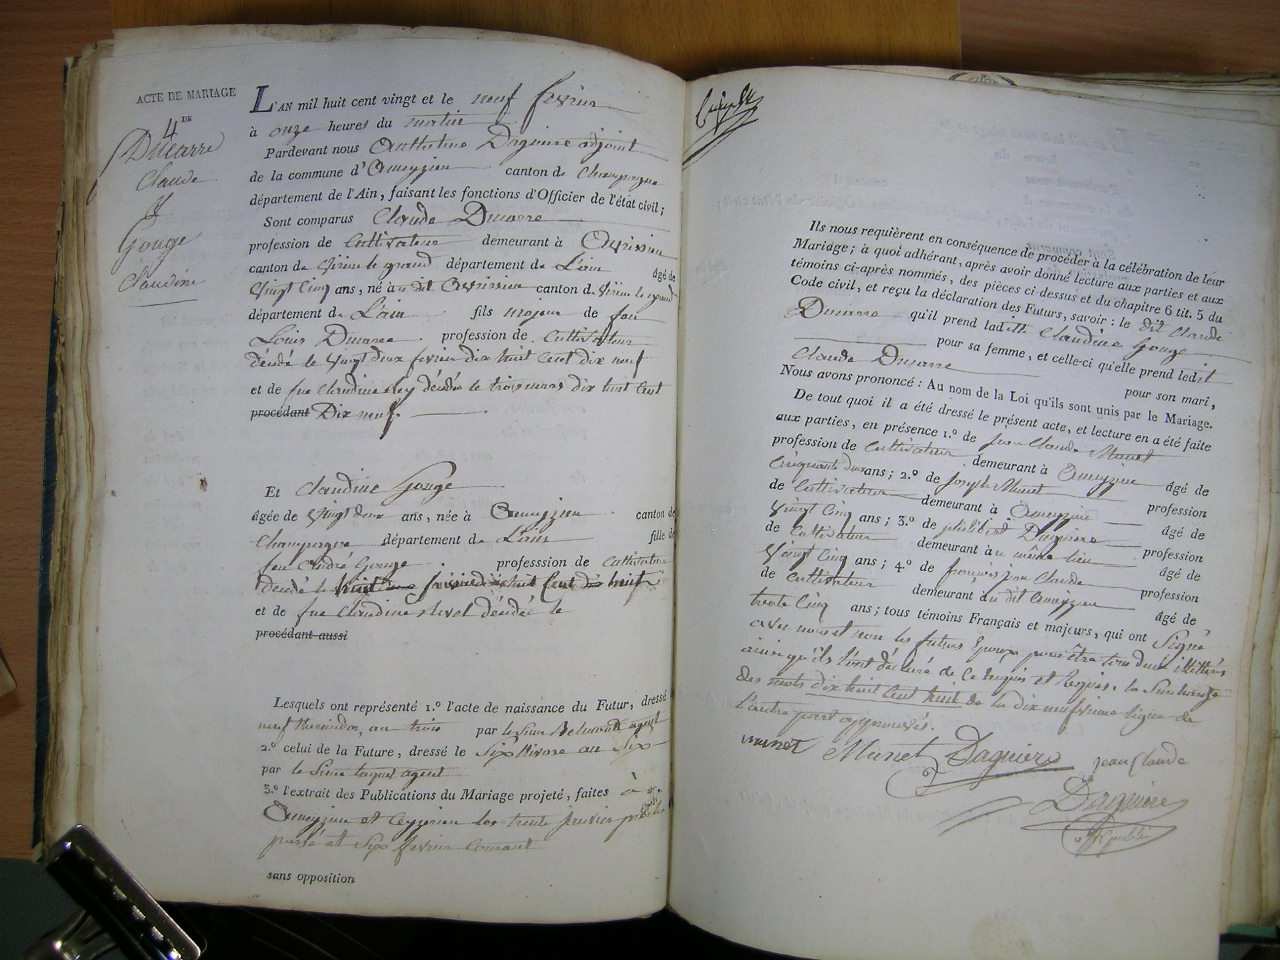 ACTE DE MARIAGE
4
DE
Duearre
Claude
&
Gouge
Claudine
L'AN mil huit cent vingt et le neuf fevrier
à onze heures du matin
Pardevant nous Anthelme Dagnire adjoint
de la commune d'Ameyzieu canton de Champagne
département de l'Ain, faisant les fonctions d'Officier de l'état civil;
Sont comparus Claude Duearre
profession de Cultivateur demeurant à
canton de Virieu le grand département de L'ain âgé de
Vingt Cinq ans, né à u dit canton de Virieu le grand
département de L'ain fils majeur de feu
Louis Duearre profession de Cultivateur
décédé le vingt deux fevrier dix huit Cent dix neuf
et de feue Claudine Rey décédée le trois mars dix huit cent
procédant Dix neuf.
Et Claudine Gouge
âgée de Vingt deux ans, née à Ameyzieu canton de
Champagne département de L'ain fille de
feu André Gouge professsion de Cultivateur
décédé le huit fevrier dix huit Cent dix huit
et de feue Claudine décédée le
procédant aussi
Lesquels ont représenté 1.º l'acte de naissance du Futur, dressé
neuf thermidor, an trois par le Sieur agent
2.º celui de la Future, dressé le Six Nivose an Six
par le Sieur agent
3.º l'extrait des Publications du Mariage projeté, faites à
Ameyzieu et Ceyzerieu les trente janvier
passé et Six fevrier Courant
sans opposition
Ils nous requièrent en conséquence de procéder à la célébration de leur
Mariage; à quoi adhérant, après avoir donné lecture aux parties et aux
témoins ci-après nommés, des pièces ci dessus et du chapitre 6 tit. 5 du
Code civil, et reçu la déclaration des Futurs, savoir: le dit Claude
Duearre qu'il prend ladite Claudine Gouge
pour sa femme, et celle-ci qu'elle prend ledit
Claude Duearre pour son mari,
Nous avons prononcé: Au nom de la Loi qu'ils sont unis par le Mariage.
De tout quoi il a été dressé le présent acte, et lecture en a été faite
aux parties, en présence 1.º de Jean Claude Munet
profession de Cultivateur demeurant à Ameyzieu âgé de
Cinquante deux ans; 2.º de Joseph Munet profession
de Cultivateur demeurant à Ameyzieu âgé de
Vingt Cinq ans; 3.º de philibert Dagnire profession
de Cultivateur demeurant à u même lieu âgé de
Vingt Cinq ans; 4.º de françois jean Claude profession
de Cultivateur demeurant à u dit Ameyzieu âgé de
trente Cinq ans; tous témoins Français et majeurs, qui ont Signé
avec nous et non les futurs Epoux pour être tous deux illittérés
ainsi qu'ils l'ont déclaré de Ce Enquis et Requis. la Surcharge
des mots dix huit Cent huit de la dix neuvieme ligne de
l'autre part approuvés.
munet Munet Dagnire jean Claude
Dagnire